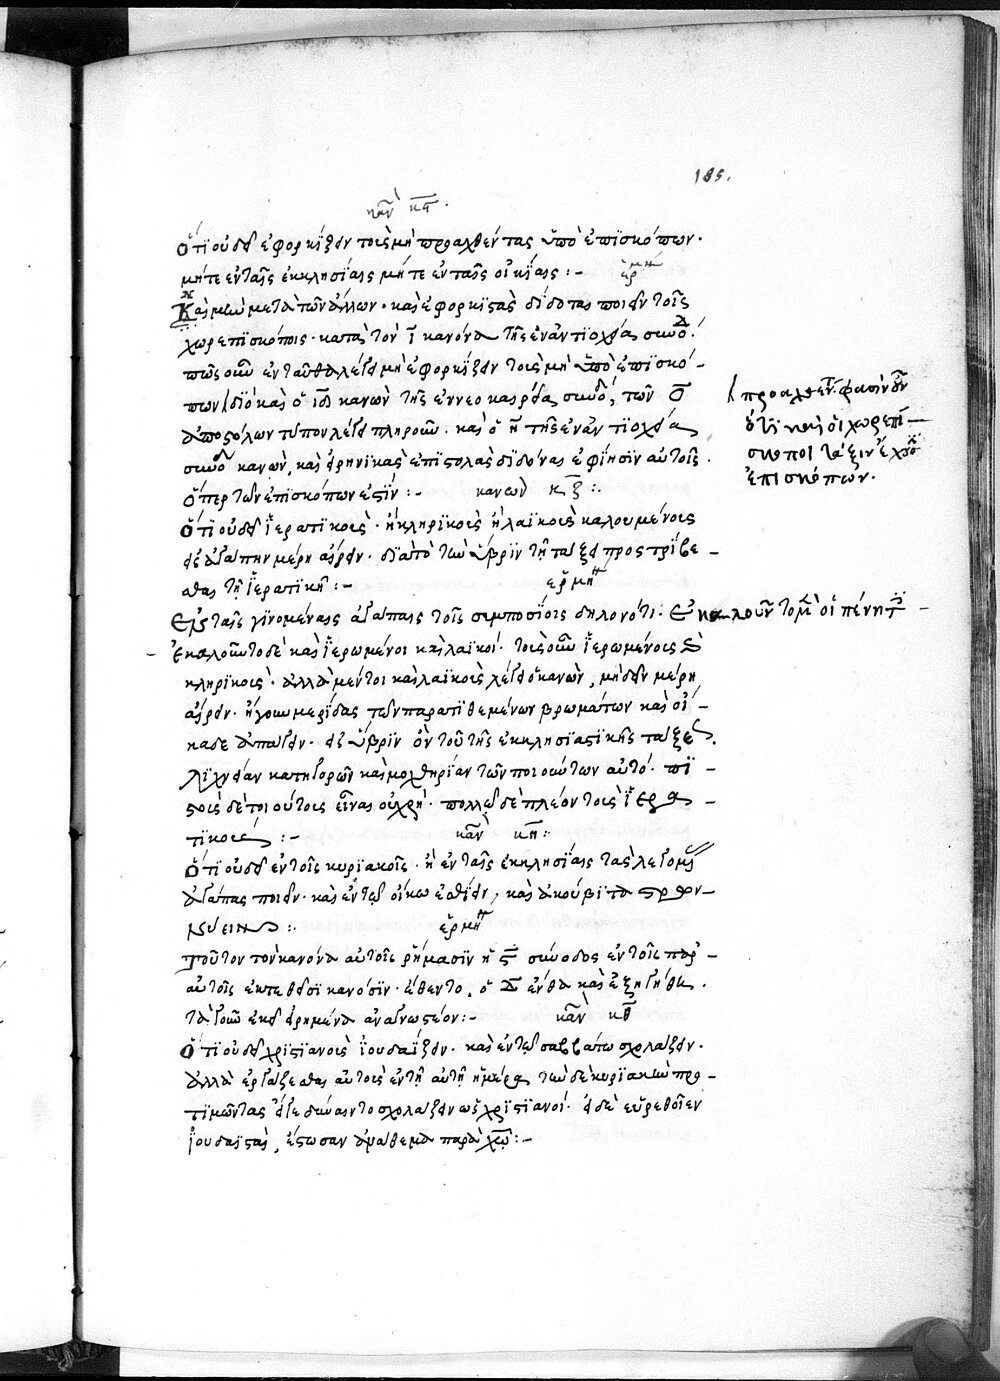 185.
κανὼν κϛ.
Ὅτι οὐ δεῖ ἐφορκίζειν τοὺς μὴ προαχθέντας ὑπὸ ἐπισκόπων.
μήτε ἐν ταῖς ἐκκλησίαις μήτε ἐν ταῖς οἰκίαις :- ἑρμη
Κἂν μετὰ τῶν ἄλλων. καὶ ἐφορκιστὰς δίδοται ποιεῖν τοῖς
χωρεπισκόποις. κατὰ τὸν ι κανόνα τῆς ἐν ἀντιοχεία συνόδ.
πῶς οὖν ἐνταῦθα λέγει μὴ ἐφορκίζειν τοὺς μὴ ὑπὸ ἐπισκό-
πων / διὸ καὶ ὁ ιδ κανὼν τῆς ἐν νεοκαισρεία συνόδ, τῶν ο
ἀποστόλων τύπον λέγει πληροῦν. καὶ ὁ η τῆς ἐν ἀντιοχεία
συνόδ κανὼν, καὶ εἰρηνικὰς ἐπιστολὰς διδόναι ἐφίησιν αὐτοῖς.
ὅπερ τῶν ἐπισκόπων ἐστίν :- κανὼν κζ :.
/ προαχθέντ. φασὶν οὖν
ὅτι καὶ οἱ χωρεπί-
σκοποι τάξιν ἔχουσ
ἐπισκόπων.
Ὅτι οὐ δεῖ ἱερατικοὺς. ἢ κληρικοὺς ἢ λαϊκοὺς καλουμένους
εἰς ἀγάπην μέρη αἴρειν. διὰ τὸ τὴν ὕβριν τῇ τάξει προστρίβε-
σθαι τῇ ἱερατικῇ :- ἑρμη
Εἰς ταῖς γινομέναις ἀγάπαις τοῖς συμποσίοις δηλονότι. ἐκαλοῦντο μὲν οἱ πένητες -
- ἐκαλοῦντο δὲ καὶ ἱερωμένοι καὶ λαϊκοί. τοὺς οὖν ἱερωμένους καὶ
κληρικοὺς. ἀλλὰ μέντοι καὶ λαϊκοὺς λέγει ὁ κανὼν, μὴ δεῖν μέρη
αἴρειν. ἤγουν μερίδας τῶν παρατιθεμένων βρωμάτων καὶ οἴ-
καδε ἀπάγειν. εἰς ὕβριν ὂν τοῦ τῆς ἐκκλησιαστικῆς τάξε.
λιχνείαν κατηγορῶν καὶ μοχθηρίαν τῶν ποιούντων αὐτό. πι
στοὺς δὲ τοιούτους εἶναι οὐ χρή. πολλῷ δὲ πλέον τοὺς ἱερα -
τικούς :- κανὼν κη :.
Ὅτι οὐ δεῖ ἐν τοῖς κυριακοῖς. ἢ ἐν ταῖς ἐκκλησίαις τὰς λεγομ
ἀγάπας ποιεῖν. καὶ ἐν τῷ οἴκω ἐσθίειν, καὶ ἀκούβιτα στρων-
νύειν :. ἑρμη
Τοῦτον τὸν κανόνα αὐτοῖς ῥήμασιν ἡ ϛ σύνοδος ἐν τοῖς παρ -
αὐτοῖς ἐκτεθεῖσι κανόσιν. ἔθεντο. ὁ δ ἔνθα καὶ ἐξηγήθη.
τὰ γοῦν ἐκεῖ εἰρημένα ἀναγνωστέον :- κανὼν κθ
Ὅτι οὐ δεῖ χριστιανοὺς ἰουδαΐζειν. καὶ ἐν τῷ σαββάτω σχολάζειν.
ἀλλὰ ἐργάζεσθαι αὐτοὺς ἐν τῇ αὐτῇ ἡμέρα τὴν δὲ κυριακὴν προ -
τιμῶντας εἴγε δύναιντο σχολάζειν ὡς χριστιανοί. εἰ δὲ εὑρεθοῖεν
ἰουδαϊσταὶ, ἔστωσαν ἀνάθεμα παρὰ χῶ :-